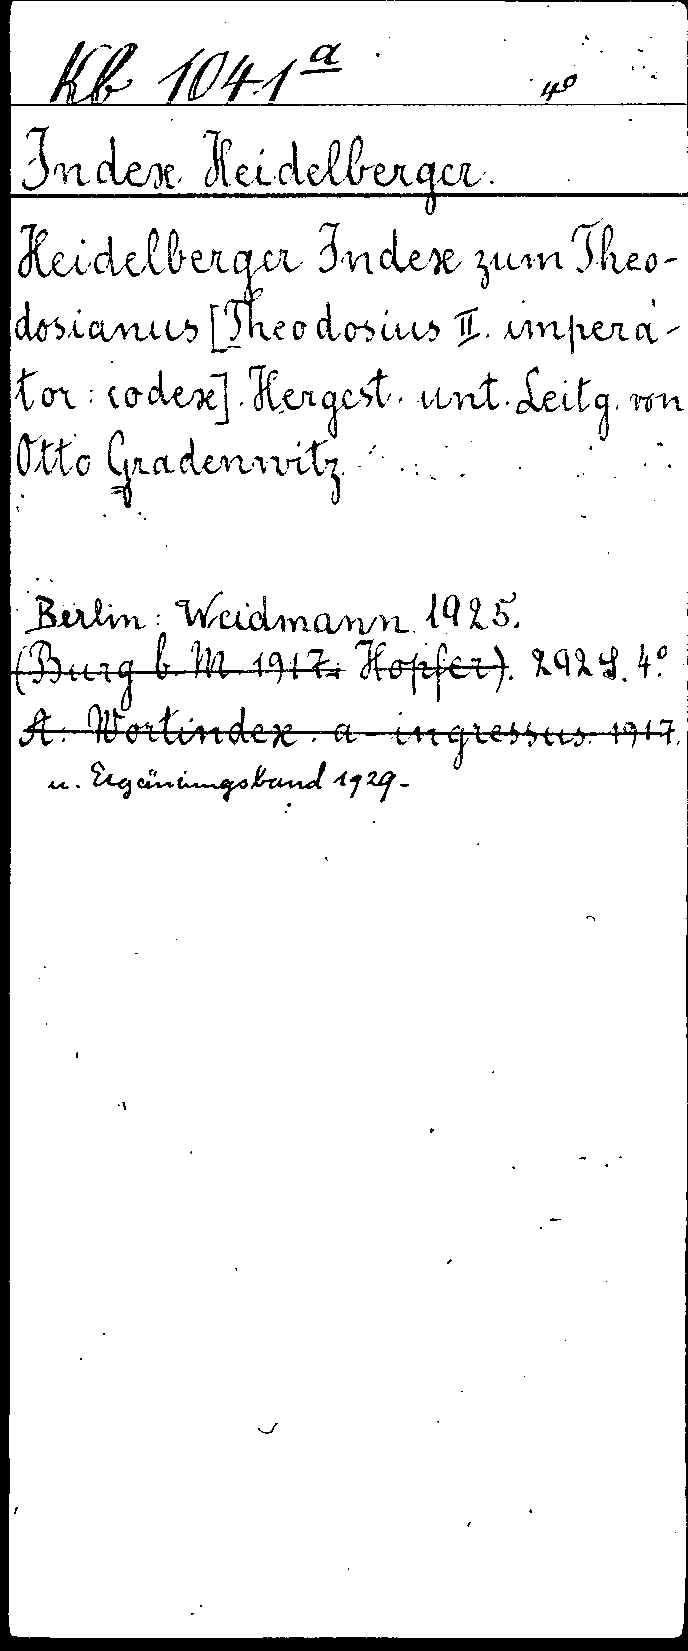 Kb 1041a 4°
Index Heidelberger.
Heidelberger Index zum Theo-
dosianus [Theodosius II. impera-
tor: codex]. Hergest. unt. Leitg. von
Otto Gradenwitz
Berlin: Weidmann 1925.
(Burg b. M 1917: Hopfer). 292 S. 4°
A: Wortindex. a - ingressus. 1917.
u. Ergänzungsband 1929-